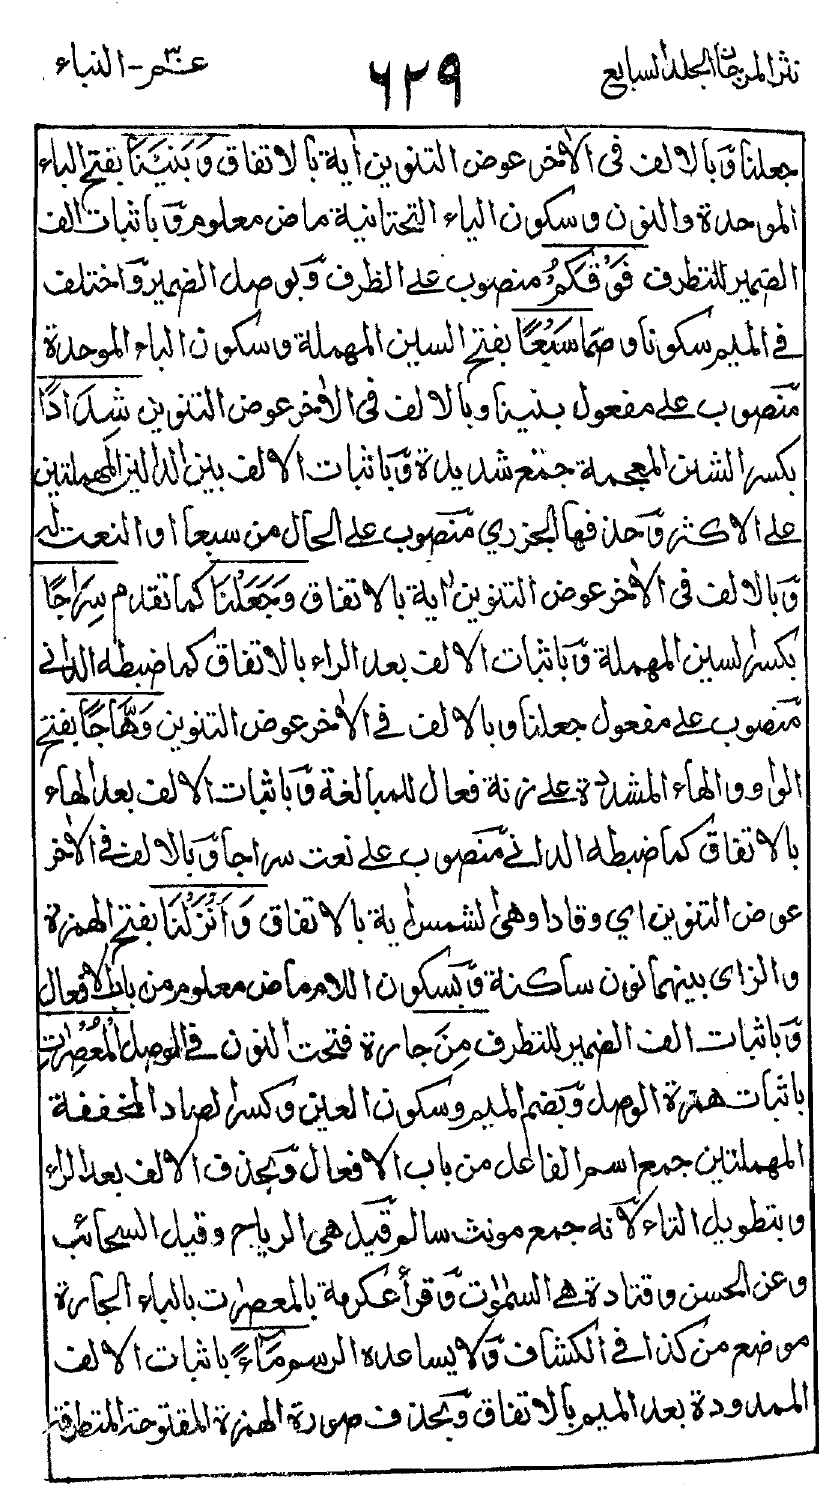 نثر المرجان الجلد السابع
٦٢٩
عمّ - النباء
جعلنا وّبالالف فى الأخر عوض التنوين أية بالاتفاق وَبَنَيْنَا بفتح الباء
الموحدة والنون وسكون الياء التحتانية ماض معلوم وّباثبات الف
الضمير للتطرف فَوْقَكُمْ منصوب على الظرف وّبوصل الضمير وّاختلف
فى الميم سكونا وضما سَبْعًا بفتح السين المهملة وسكون الباء الموحدة
منصوب على مفعول بنينا وبالالف فى الأخر عوض التنوين شِدَادًا
بكسر الشين المعجمة جمع شديدة وّباثبات الالف بين الدالين المهملتين
على الاكثر وّحذفها الجزري منصوب على الحال من سبعا او النعت له
وّبالالف فى الأخر عوض التنوين أية بالاتفاق وَجَعَلْنَا كما تقدم سِرَاجًا
بكسر السين المهملة وّباثبات الالف بعد الراء بالاتفاق كما ضبطه الدانى
منصوب على مفعول جعلنا وبالالف فى الأخر عوض التنوين وَهَّاجًا بفتح
الواو والهاء المشددة على زنة فعال للمبالغة وّباثبات الالف بعد الهاء
بالاتفاق كما ضبطه الدانى منصوب على نعت سراجا وّبالالف فى الأخر
عوض التنوين اي وقادا وهى الشمس أية بالاتفاق وَاَنْزَلْنَا بفتح الهمزة
والزاى بينهما نون ساكنة وّبسكون اللام ماض معلوم من باب الافعال
وّباثبات الف الضمير للتطرف مِنَ جارة فتحت النون فى الوصل الْمُعْصِرٰتِ
باثبات همزة الوصل وّبضم الميم وسكون العين وكسر الصاد المخففة
المهملتين جمع اسم الفاعل من باب الافعال وّبحذف الالف بعد الراء
وبتطويل التاء لأنه جمع مونث سالم قيل هى الرياح وقيل السحائب
وعن الحسن وقتادة هى السمٰوٰت وّقرأ عكرمة بالمعصرٰت بالباء الجارة
موضع من كذا فى الكشاف وّلا يساعده الرسم مَآءً باثبات الالف
الممدودة بعد الميم بالاتفاق وّبحذف صورة الهمزة المفتوحة المتطرفة